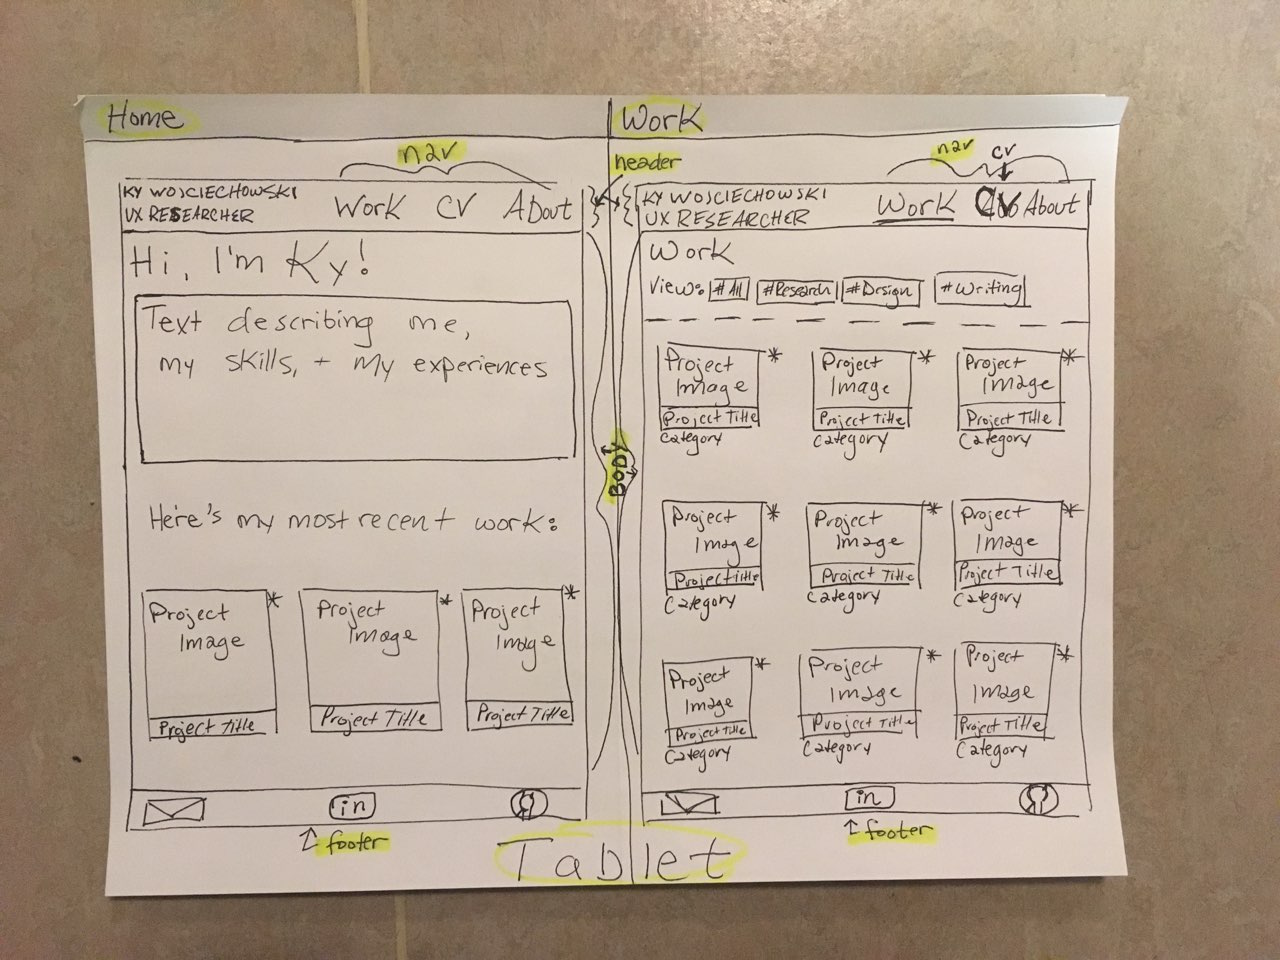 Home
nav
KY WOJCIECHOWSKI
UX RESEARCHER
Work CV About
Hi, I'm Ky!
Text describing me,
my skills, + my experiences
Here's my most recent work:
Project
Image
Project Title
Project
Image
Project Title
Project
Image
Project Title
in
footer
header
BODY
Work
nav
CV
KY WOJCIECHOWSKI
UX RESEARCHER
Work CV About
Work
View: #All #Research #Design #Writing
Project
Image
Project Title
Category
Project
Image
Project Title
Category
Project
Image
Project Title
Category
Project
Image
Project title
Category
Project
Image
Project Title
Category
Project
Image
Project Title
Category
Project
Image
Project Title
Category
Project
Image
Project Title
Category
Project
Image
Project Title
Category
in
footer
Tablet